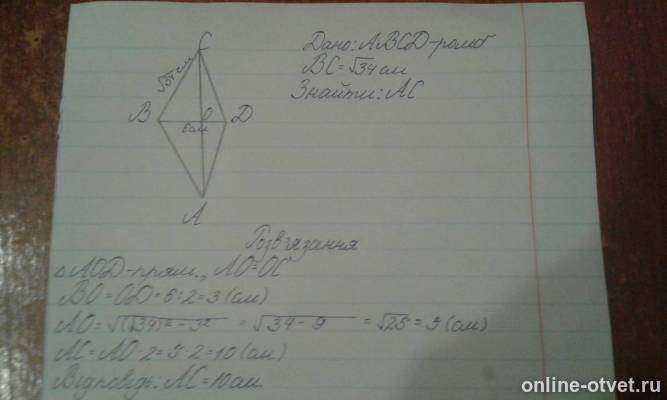 C
Дано: ABCD-ромб
√34 см
BC=√34 см
Знайти: AC
B
O
D
6см
A
Розв'язання
△AOD-прям., AO=OC
BO=OD=6:2=3(см)
AO=√(√34)²-3² = √34-9 = √25=5(см)
AC=AO·2=5·2=10(см)
Відповідь: AC=10см.
online-otvet.ru